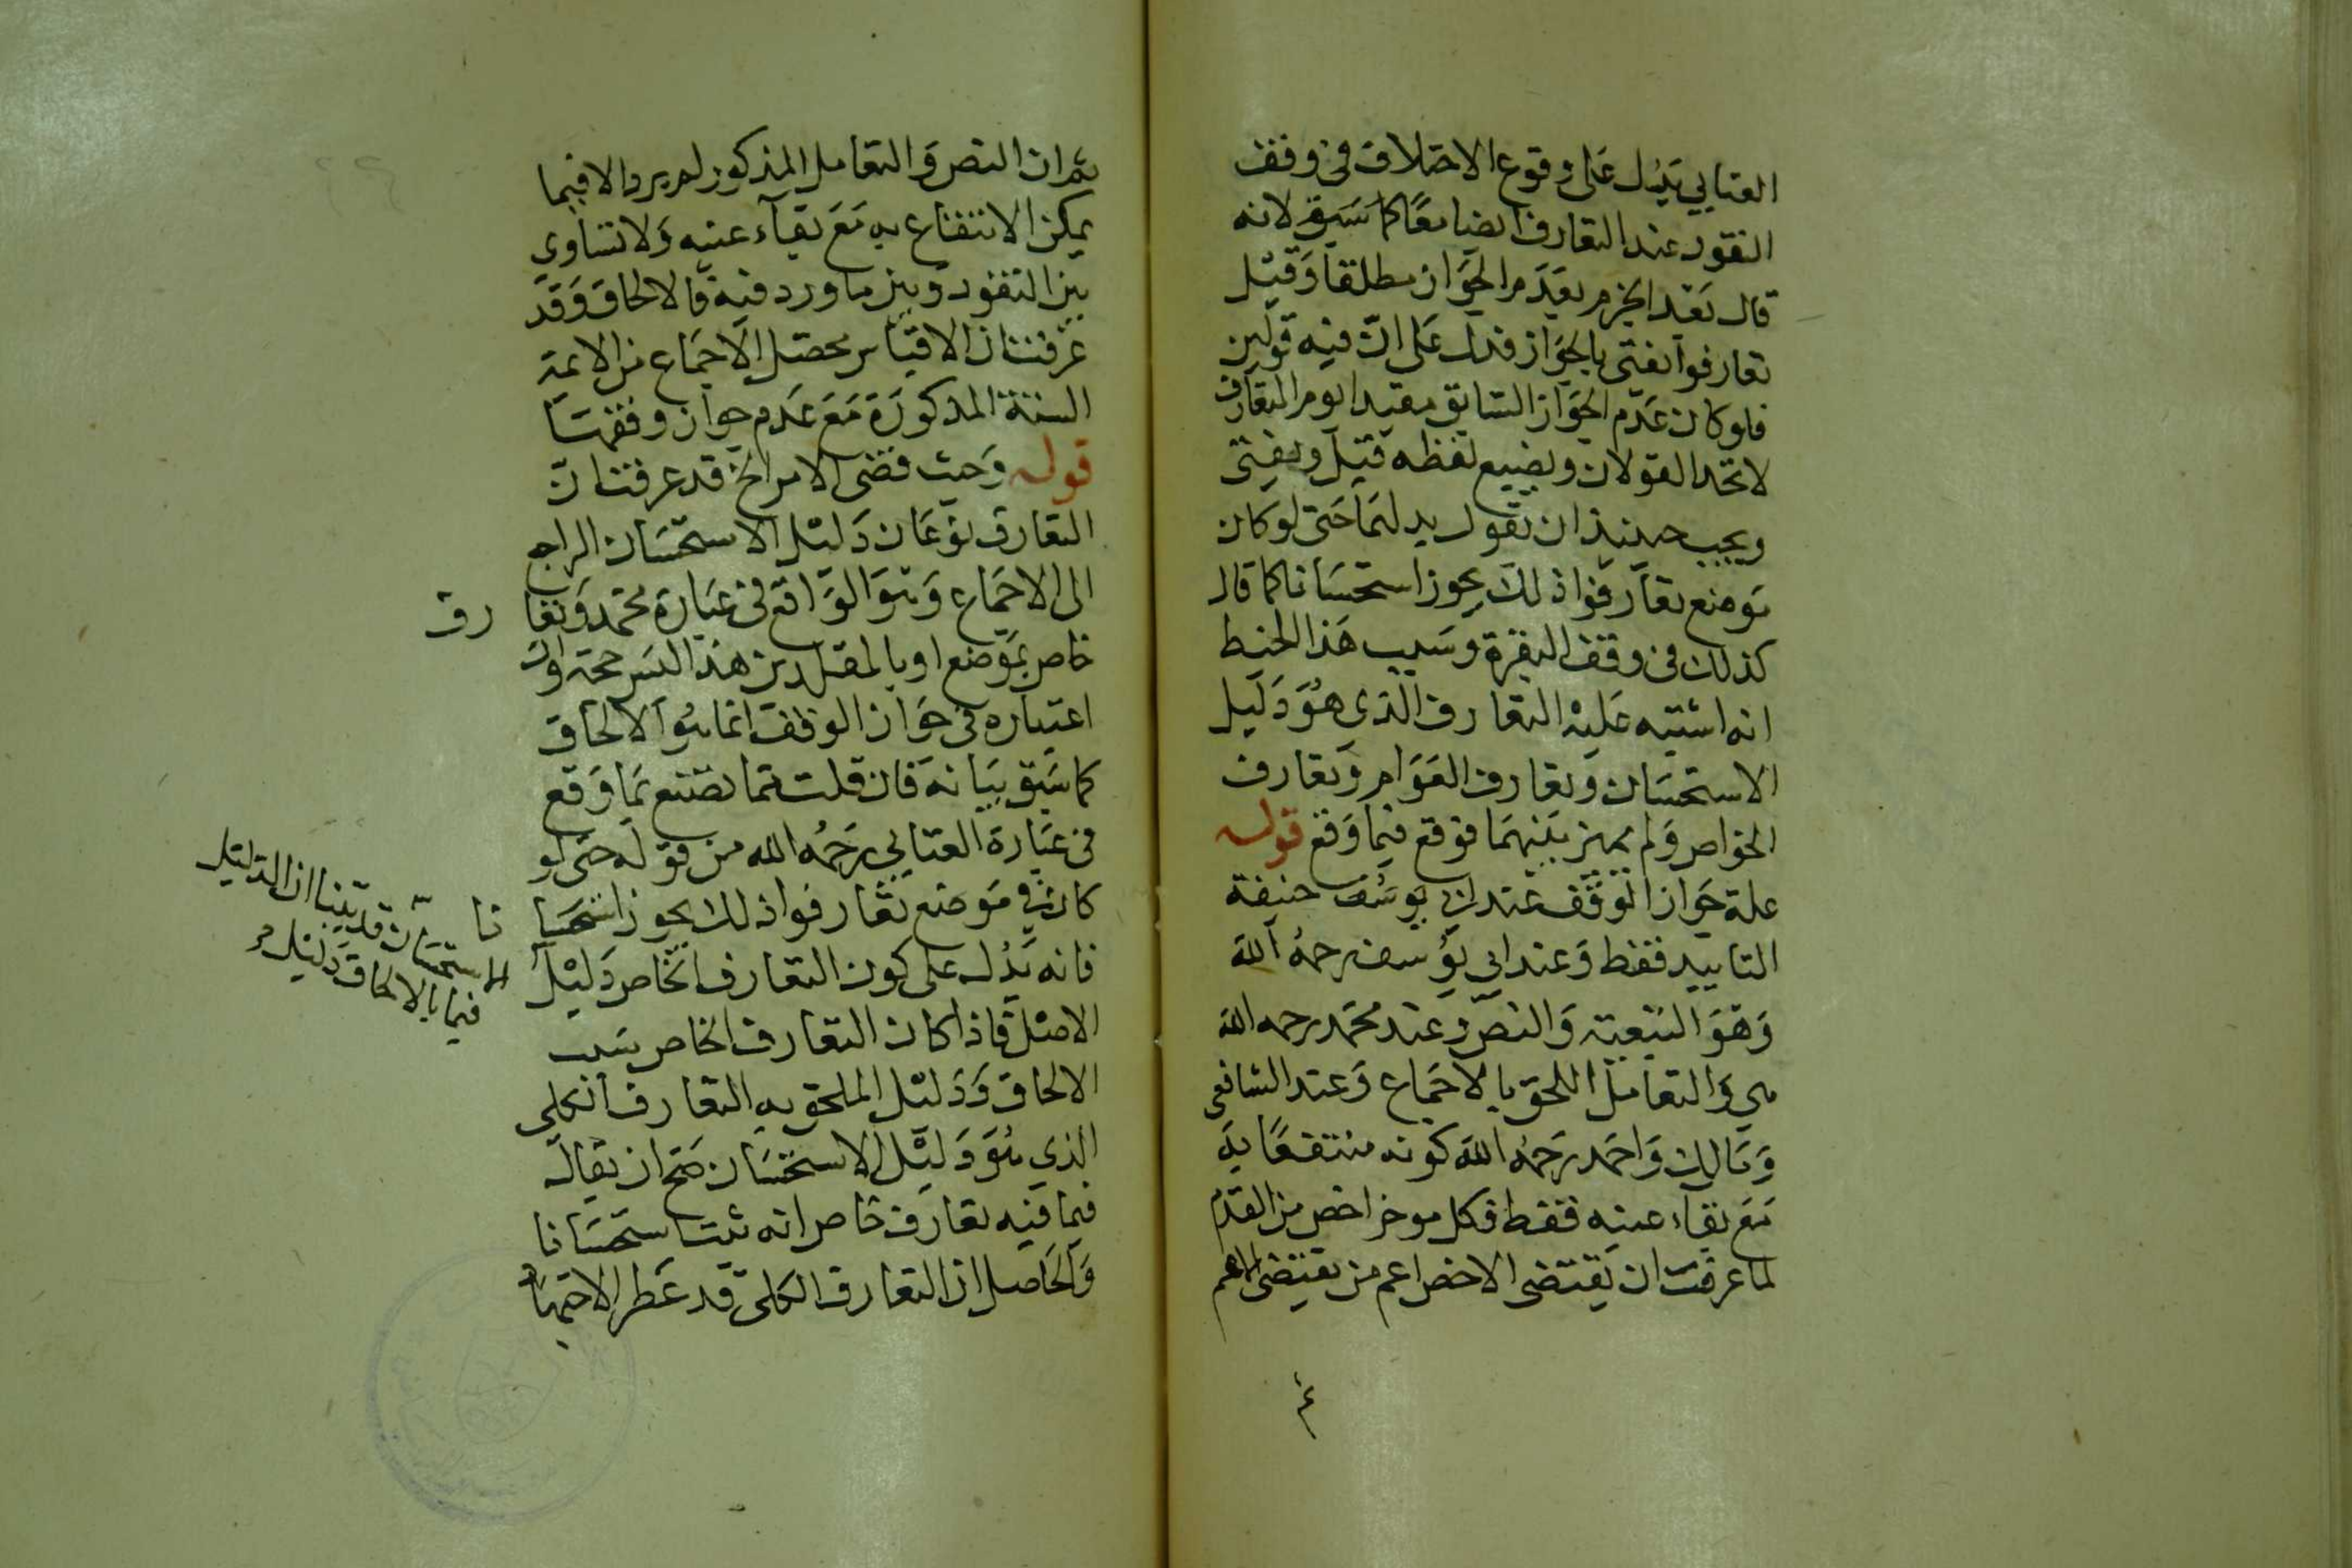 العتابي يدل على وقوع الاختلاف في وقف
النقود عند التعارف ايضا معًا كما سبق لانه
قال بعد الجزم بعدم الجواز مطلقا وقيل
تعارفوا يفتى بالجواز فدل على ان فيه قولين
فلو كان عدم الجواز السابق مقيدا بعدم التعارف
لاتحد القولان ويضيع لفظه قيل ويفتى
ويجب حينئذ ان يقول بدلهما حتى لو كان
موضع تعارفوا ذلك يجوز استحسانا كما قال
كذلك في وقف البقرة وسبب هذا الخبط
انه اشتبه عليه التعارف الذي هو دليل
الاستحسان وتعارف العوام وتعارف
الخواص ولم يميز بينهما فوقع فيما وقع قوله
علة جواز الوقف عند ابي يوسف حنيفة
التابيد فقط وعند ابي يوسف رحمه الله
وهو التبعية والنص وعند محمد رحمه الله
هي والتعامل اللحق بالاجماع وعند الشافعي
ومالك واحمد رحمه الله كونه منتفعًا به
مع بقاء عينه فقط فكل موخر اخص من المقدم
لما عرفت ان يقتضى الاخص اعم من يقتضى الاعم
ثم ان النص والتعامل المذكور لم يردا الا فيما
يمكن الانتفاع به مع بقاء عينه ولا تساوي
بين النقود وبين ما ورد فيه فالالحاق وقد
عرفت ان الاقتباس محصل الاجماع من الايمة
الستة المذكورة مع عدم جواز وقفها
قوله وحيث قضى الامر الخ قد عرفت ان
التعارف نوعان دليل الاستحسان الراجع
الى الاجماع وهو الواقع في عبارة محمد وتعا
رف
خاص بموضع او بالمقلدين هذا ليس حجة وان
اعتباره في جواز الوقف انما هو الالحاق
كما سبق بيانه فان قلت فما تصنع بما وقع
في عبارة العتابي رحمه الله من قوله حتى لو
كان في موضع تعارفوا ذلك يجوز استحسا
نا
قد بينا ان الدليل
الاستحسان
فيما بالالحاق دليل
فانه يدل على كون التعارف الخاص دليل
الاصل فاذا كان التعارف الخاص سبب
الالحاق ودليل الملحق به التعارف الكلي
الذي هو دليل الاستحسان صح ان يقال
فيما فيه تعارف خاص انه ثبت استحسانا
والحاصل ان التعارف الكلي قد